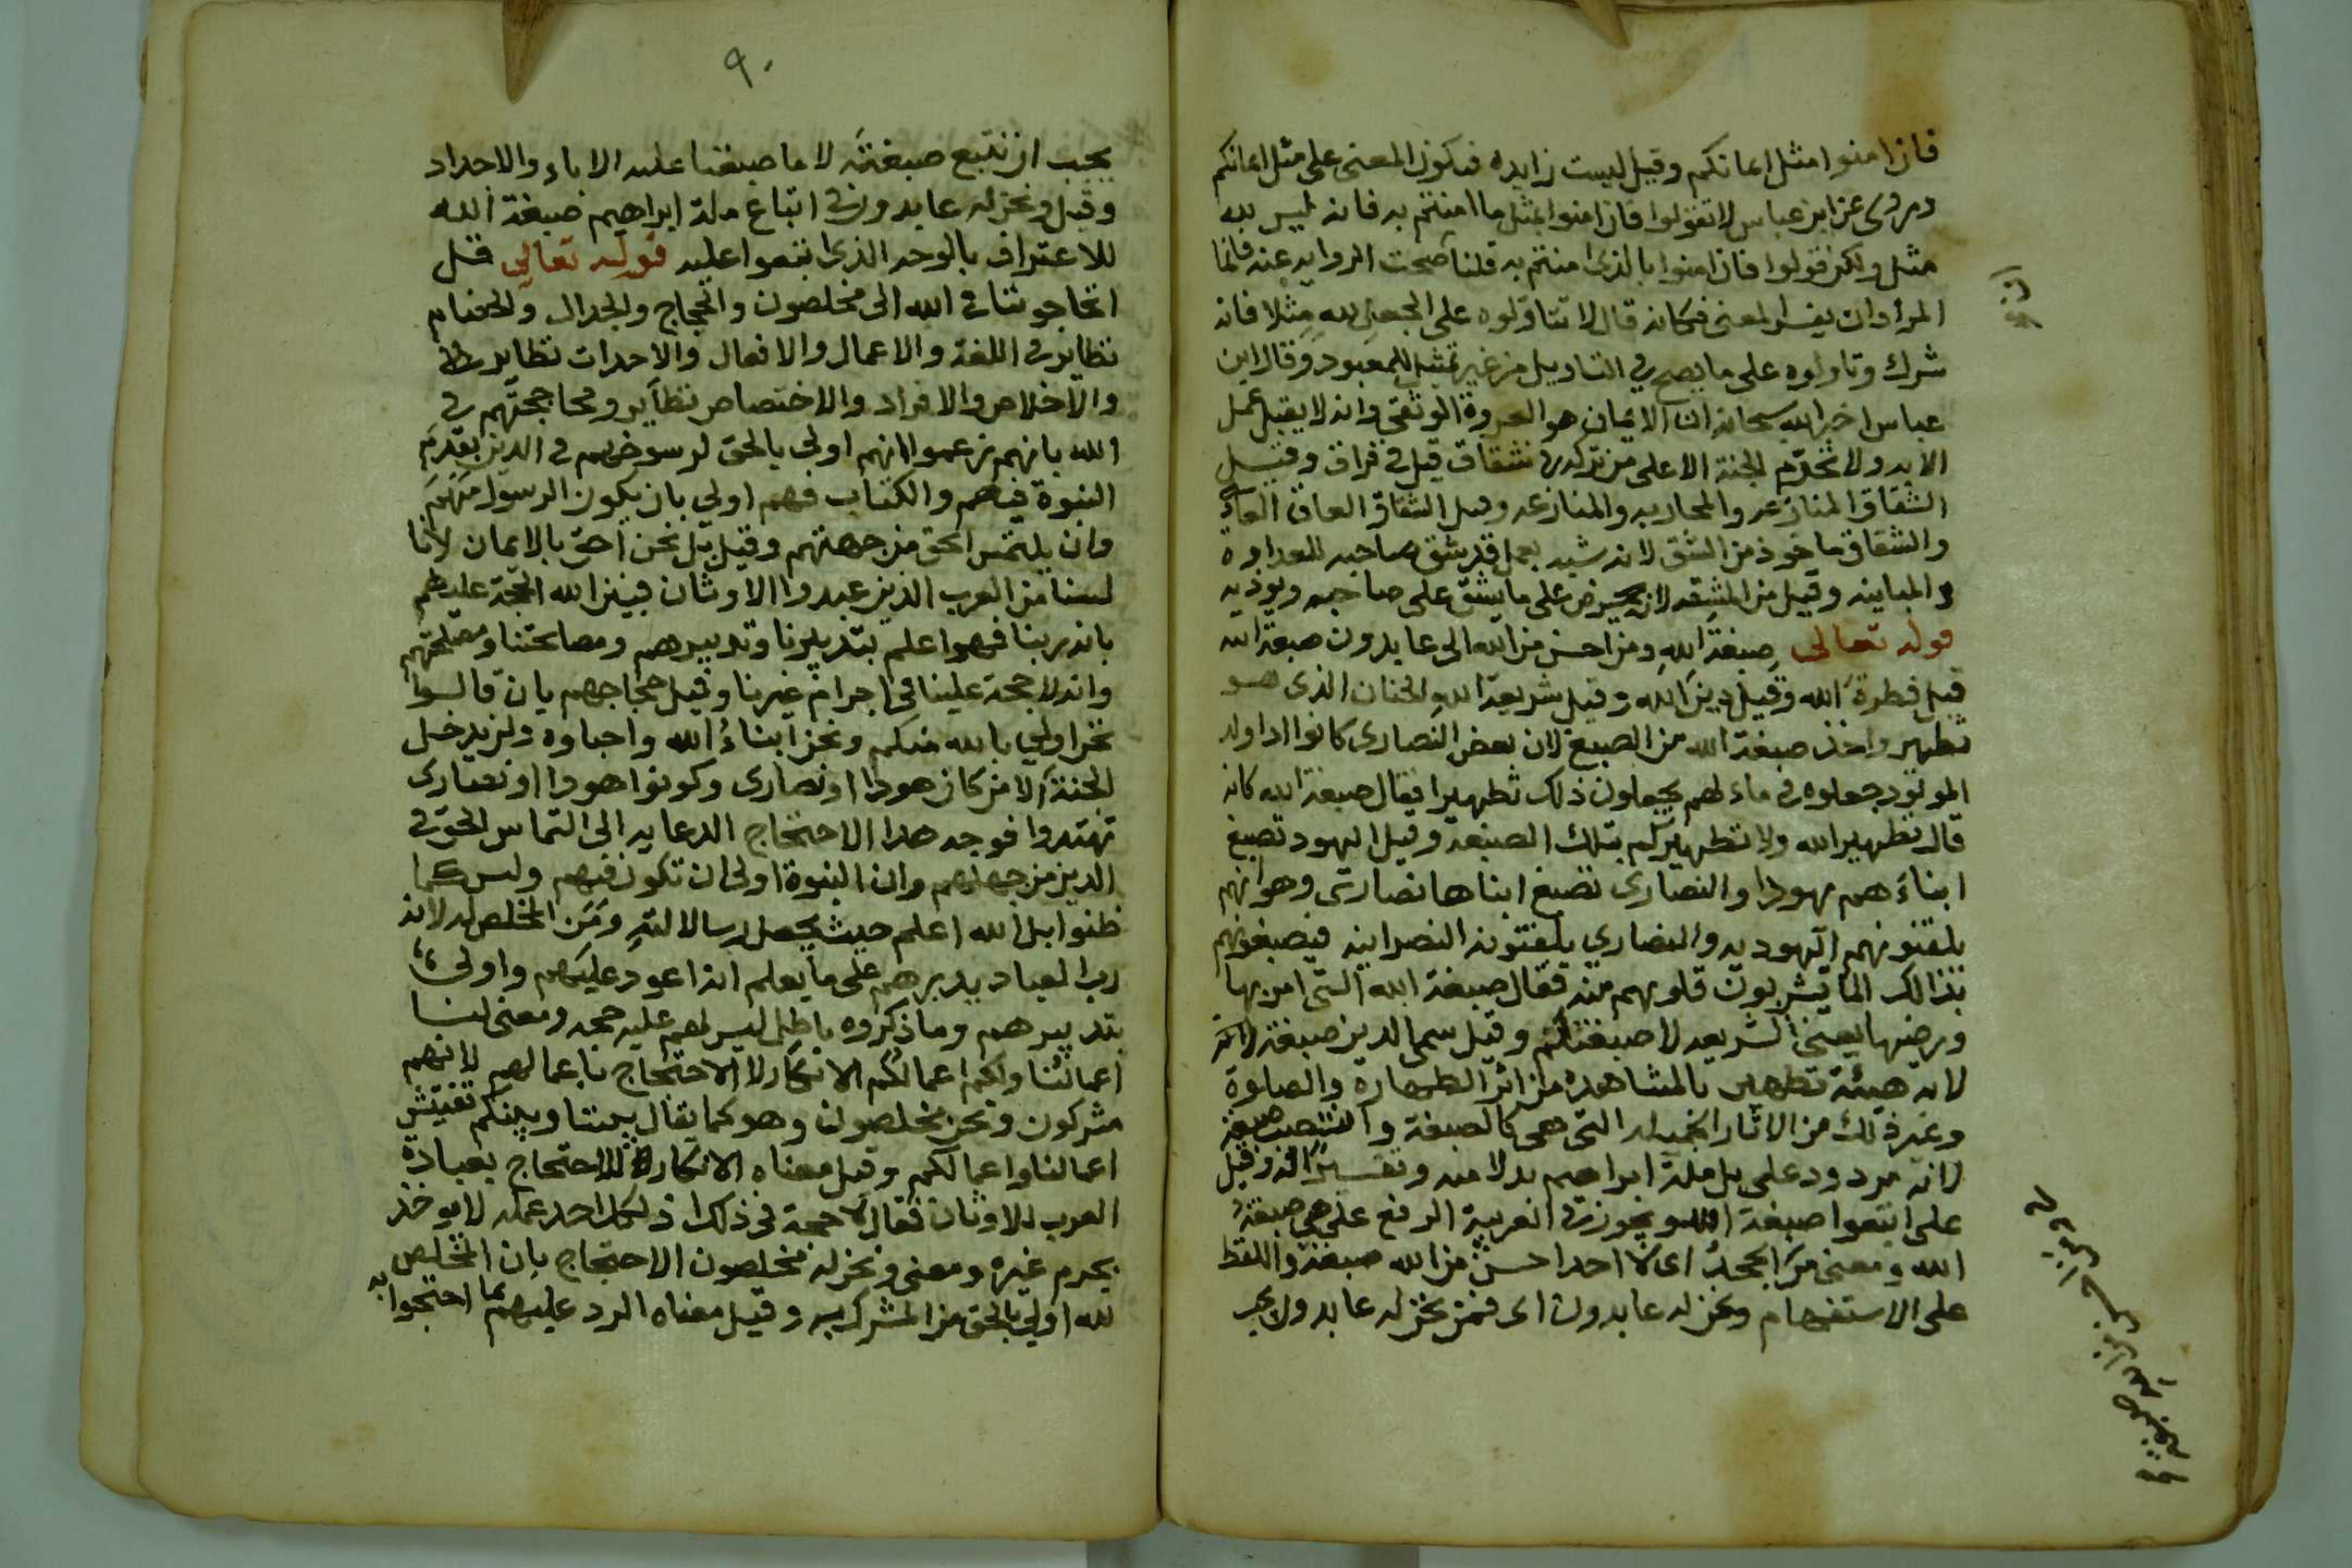 فان امنوا مثل ايمانكم وقيل ليست زايدة فيكون المعنى على مثل ايمانكم
وروى عن ابن عباس لا تقولوا فان امنوا بمثل ما امنتم به فانه ليس لله
مثل ولكن قولوا فان امنوا بالذى امنتم به قلنا صحت الرواية عنه فانما
المراد ان يفسر المعنى فكانه قال لا تتاولوه على الجعل لله مثلا فانه
شرك وتاولوه على ما يصح في التاويل من غير تمثيل للمعبود وقال ابن
عباس اخبر الله سبحانه ان الايمان هو العروة الوثقى وانه لا يقبل عمل
الا به ولا تحرم الجنة الا على من تركه في شقاق قيل في فراق وقيل
الشقاق المنازعه والمحاربه والمنازعه وقيل الشقاق
والشقاق ماخوذ من الشق لانه شبه بعمل قد يشق صاحبه للعداوة
والمباينه وقيل من المشقه لانه يحرض على ما يشق على صاحبه ويوذيه
قوله تعالى صبغة الله ومن احسن من الله الى عابدون صبغة الله
قيل فطرة الله وقيل دين الله وقيل شريعة الله الختان الذى هو
تطهير واخذ صبغة الله من الصبغ لان بعض النصارى كانوا اذا ولد
المولود جعلوه فى ماء لهم يجعلون ذلك تطهيرا فقال صبغة الله كانه
قال تطهير الله ولا تطهيركم بتلك الصبغه وقيل اليهود تصبغ
ابناءهم يهودا والنصارى تصبغ ابناها نصارى وهو انهم
يلقنونهم اليهوديه والنصارى يلقنونه النصرانيه فيصبغونهم
بذالك لما يشربون قلوبهم منه فقال صبغة الله التى امر بها
ورضيها يعنى الشريعه لا صبغتكم وقيل سمى الدين صبغة لانه
لانه هيئة تظهر بالمشاهدة من اثر الطهارة والصلوة
وغير ذلك من الاثار الجميله التى هى كالصبغة وانتصب صبغة
لانه مردود على بل ملة ابراهيم بدلا منه وتفسيرا له وقيل
على اتبعوا صبغة الله ويجوز فى العربية الرفع على هى صبغة
الله ومعنى من الجحد اى لا احدا حسن من الله صبغة واللفظ
على الاستفهام ونحن له عابدون اى فمن نحن له عابدون
يجب ان نتبع صبغته لا ما صبغنا عليه الاباء والاجداد
وقيل ونحن له عابدون فى اتباع ملة ابراهيم صبغة الله
للاعتراف بالوجه الذى اتبعوا عليه قوله تعالى قل
اتحاجوننا فى الله الى مخلصون والحجاج والجدال والخصام
نظاير فى اللغة والاعمال والافعال والاحداث نظاير
والاخلاص والافراد والاختصاص نظاير ومحاججتهم في
الله بانهم زعموا انهم اولى بالحق لرسوخهم فى الدين بقدم
النبوة فيهم والكتاب فهم اولى بان يكون الرسول منهم
وان يلتمس الحق من جهتهم وقيل بل نحن احق بالايمان لانا
لسنا من العرب الذين عبدوا الاوثان فبين الله الحجة عليهم
بانه ربنا فهو اعلم بتدبيرنا وتدبيرهم ومصالحتنا ومصلحتهم
وانه لا حجة علينا فى اجرام غيرنا وقيل حجاجهم بان قالوا
نحن اولى بالله منكم ونحن ابناء الله واحباوه ولن يدخل
الجنة الا من كان هودا او نصارى وكونوا هودا او نصارى
تهتدوا فوجه هذا الاحتجاج الدعايه الى التماس الحق فى
الدين من جهلهم وان النبوة اولى ان تكون فيهم وليس كما
ظنوا بل الله اعلم حيث يجعل رسالاته ومن المخلص له لانه
رب العباد يدبرهم على ما يعلم انه اعود عليهم واولى
بتدبيرهم وما ذكروه باطل ليس لهم عليه حجه ومعنى لنا
اعمالنا ولكم اعمالكم الانكار لا الاحتجاج باعمالهم لانهم
مشركون ونحن مخلصون وهو كما يقال بيننا وبينكم تفتيش
اعمالنا واعمالكم وقيل معناه الانكار للاحتجاج بعبادة
العرب للاوثان فقال لا حجة فى ذلك اذ لكل احد عمله لا يوخذ
بجرم غيره ومعنى ونحن له مخلصون الاحتجاج بان المخلص
لله اولى بالحق من المشرك به وقيل معناه الرد عليهم بما احتجوا به
٩٠